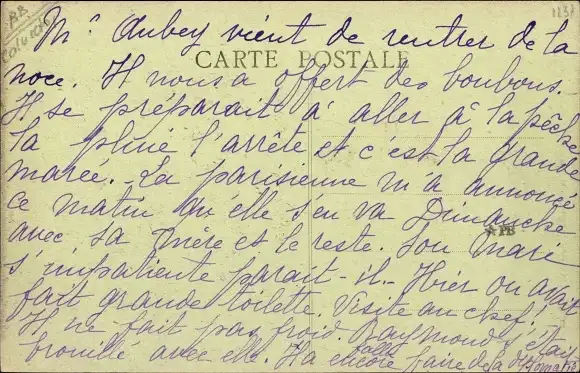 BB
Calvados
1137
Mr Aubey vient de rentrer de la
CARTE POSTALE
noce. Il nous a offert des bonbons.
Il se préparait à aller à la pêche
la pluie l'arrête et c'est la grande
marée. La parisienne m'a annoncé
ce matin qu'elle s'en va Dimanche
PB
avec sa mère et le reste. Son mari
s'impatiente paraît-il. Hier on avait
fait grande toilette. Visite au chef!
Il ne fait pas froid. Raymond s'était
brouillé avec elle. Il a encore fallu faire de la diplomatie